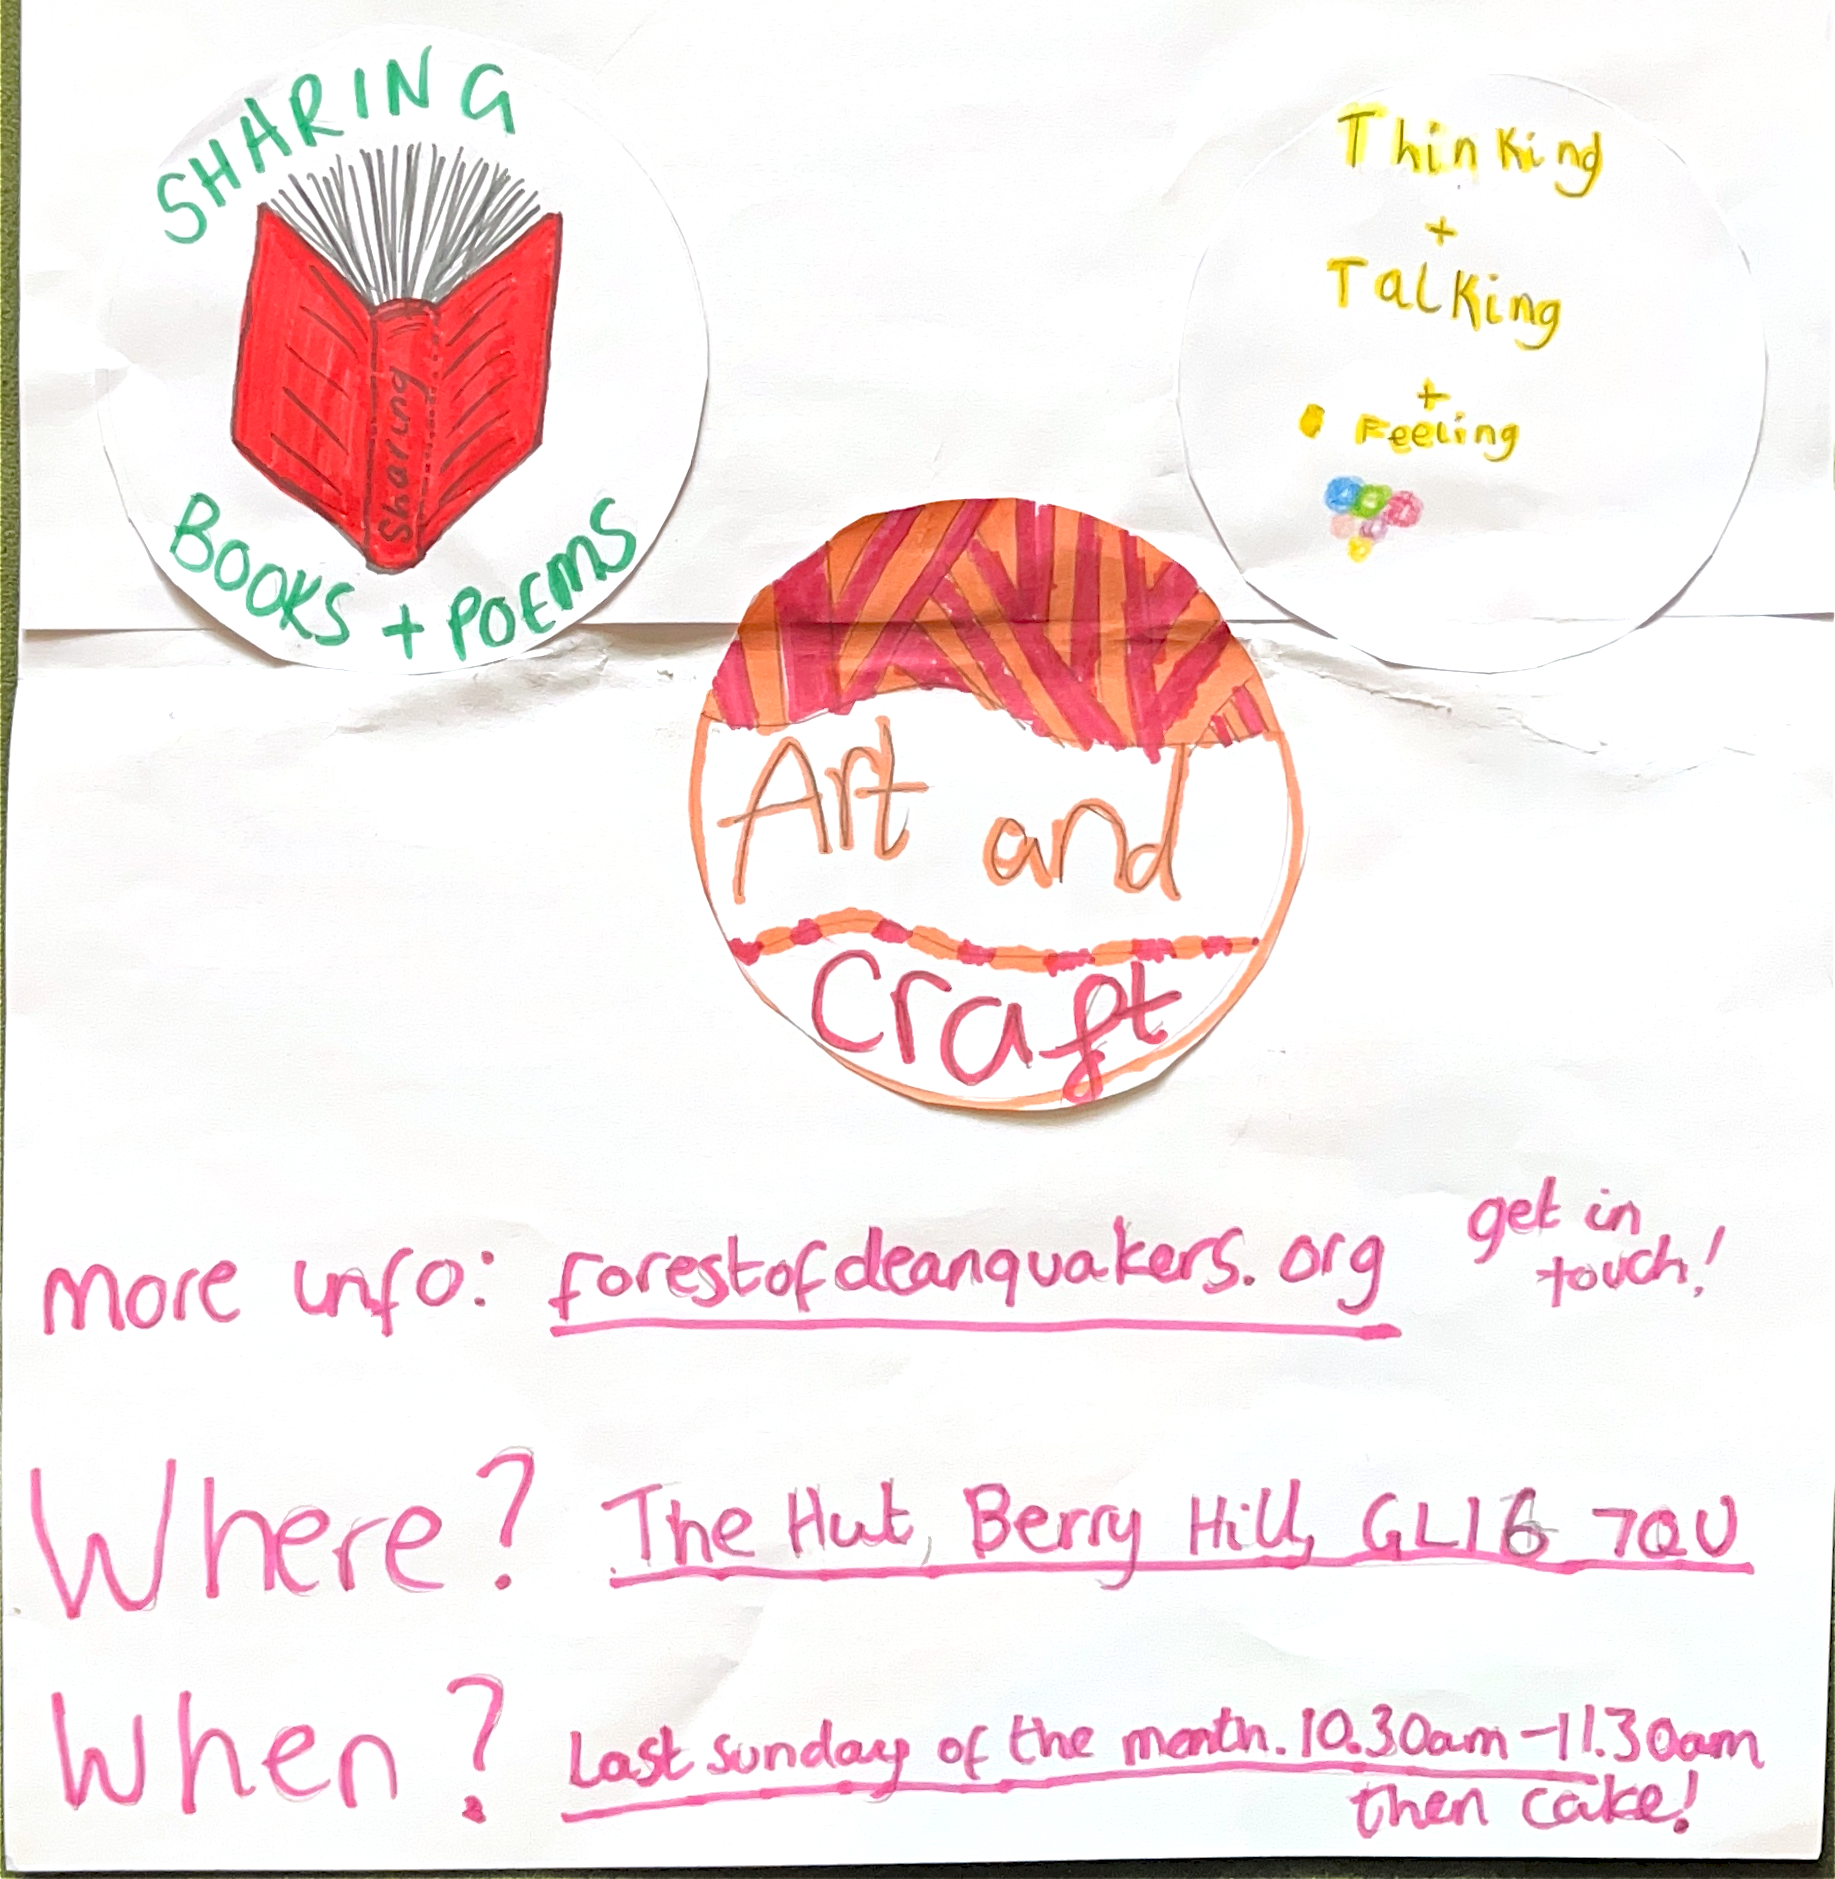 SHARING
Sharing
BOOKS + POEMS
Thinking
+
Talking
+
Feeling
Art and
Craft
more info: forestofdeanquakers.org
get in
touch!
Where? The Hut, Berry Hill, GL16 7QU
When? Last sunday of the month. 10.30am - 11.30am
then cake!